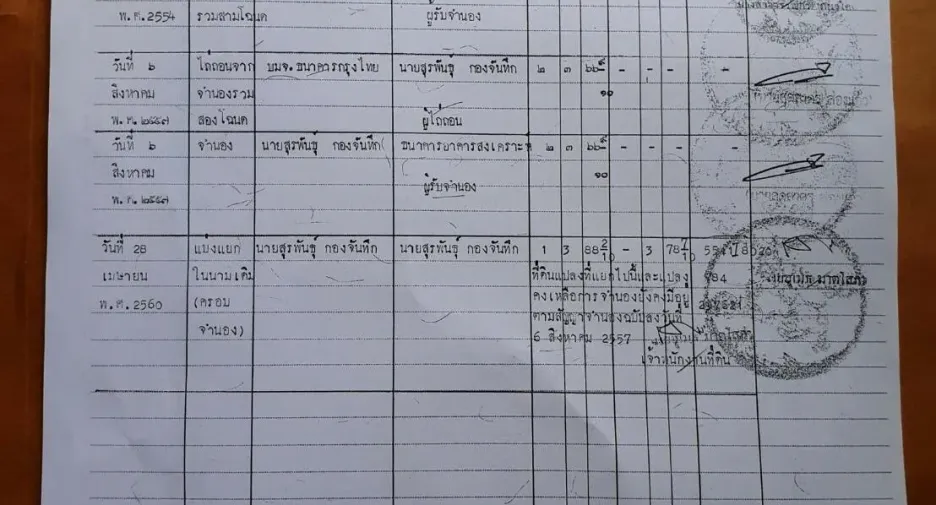 พ.ศ.2554 รวมสามโฉนด ผู้รับจำนอง
วันที่ ๖ ไถ่ถอนจาก บมจ.ธนาคารกรุงไทย นายสุรพันธุ์ กองจันทึก ๒ ๓ ๖๖ - - - - -
สิงหาคม จำนองรวม ๑๐
พ.ศ. ๒๕๕๗ สองโฉนด ผู้ไถ่ถอน
วันที่ ๖ จำนอง นายสุรพันธุ์ กองจันทึก ธนาคารอาคารสงเคราะห์ ๒ ๓ ๖๖ - - - - -
สิงหาคม ผู้รับจำนอง ๑๐
พ.ศ. ๒๕๕๗
วันที่ 28 แบ่งแยก นายสุรพันธุ์ กองจันทึก นายสุรพันธุ์ กองจันทึก 1 3 88 2/10 - 3 78 7/10
เมษายน ในนามเดิม ที่ดินแปลงที่แยกไปนี้และแปลง
พ.ศ.2560 (ครอบ คงเหลือการจำนองยังคงมีอยู่
จำนอง) ตามสัญญาจำนองฉบับลงวันที่
6 สิงหาคม 2557
เจ้าพนักงานที่ดิน